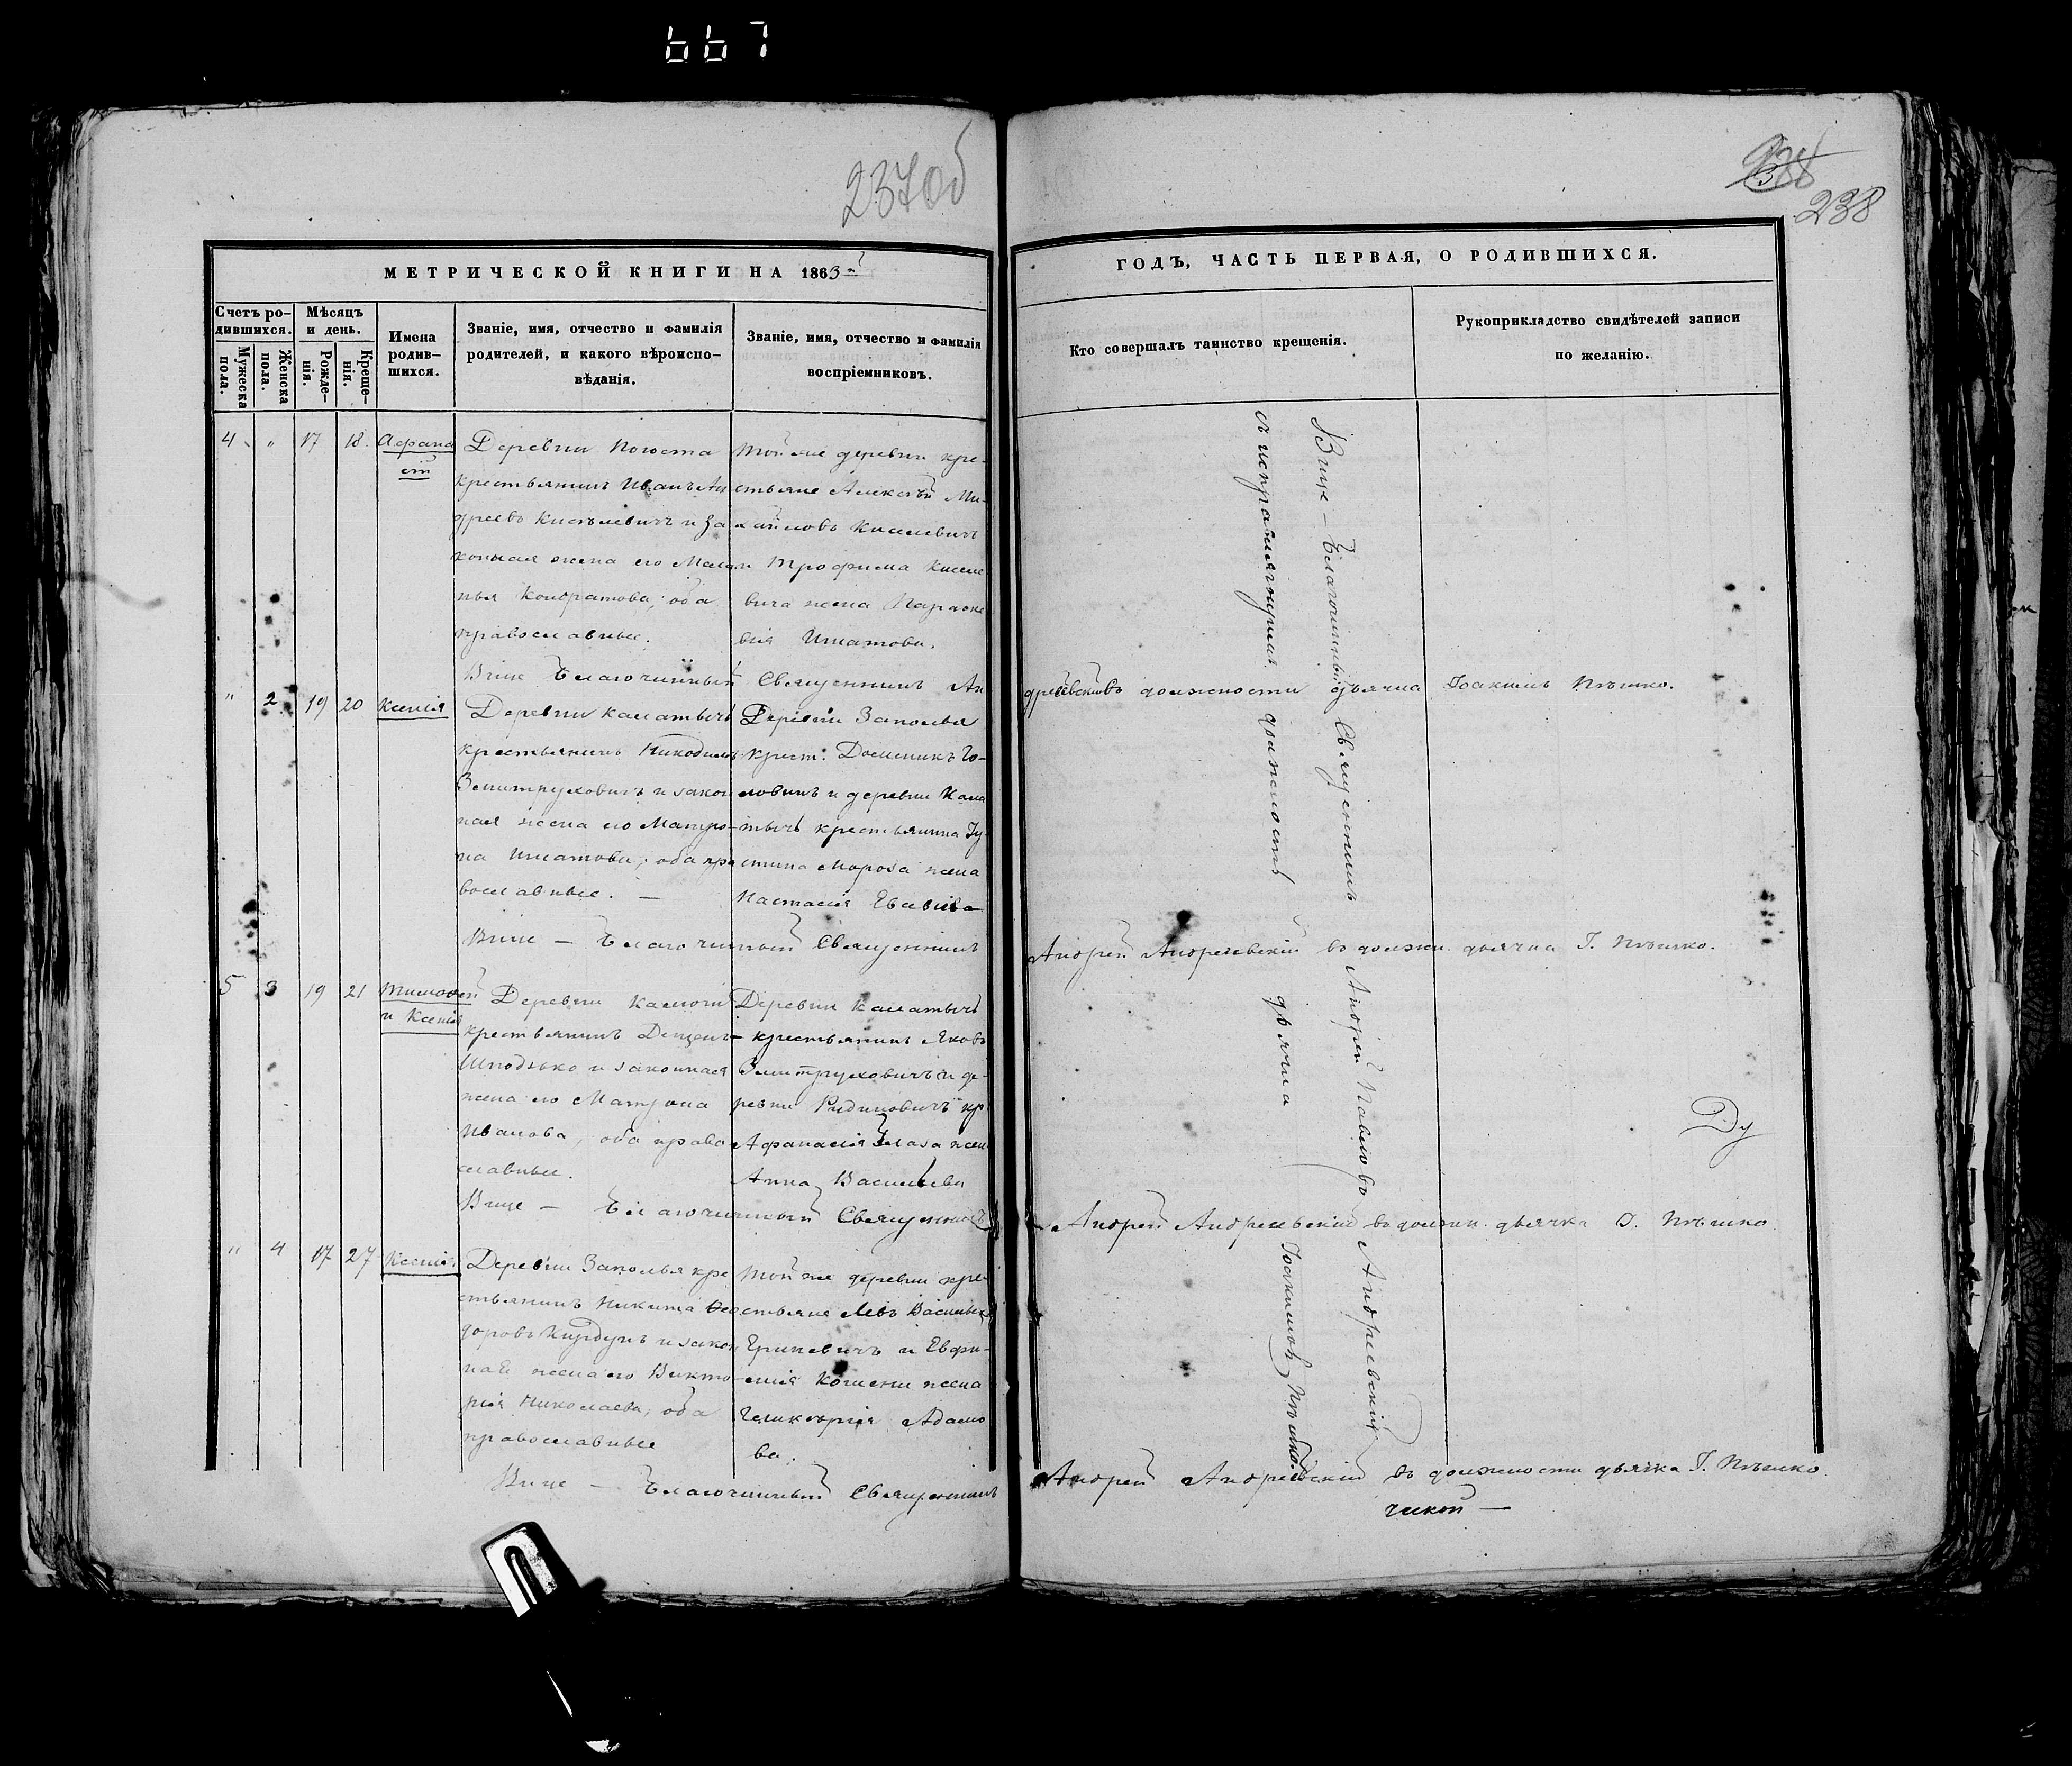 667
237об
238
238
МЕТРИЧЕСКОЙ КНИГИ НА 1863й
ГОДЪ, ЧАСТЬ ПЕРВАЯ, О РОДИВШИХСЯ.
Счетъ ро-
дившихся.
Мужеска
пола.
Женска
пола.
Мѣсяцъ
и день.
Рожде-
нія.
Креще-
нія.
Имена
родив-
шихся.
Званіе, имя, отчество и фамилія
родителей, и какого вѣроиспо-
вѣданія.
Званіе, имя, отчество и фамилія
воспріемниковъ.
Кто совершалъ таинство крещенія.
Рукоприкладство свидѣтелей записи
по желанію.
4 " 17 18. Афана
сій
Деревни Погоста
крестьянинъ Иванъ Ан
дреевъ Кисѣлевичъ и за
конная жена его Мела
нья Кондратова, оба
православные.
Той же деревни кре-
стьяне Алексѣй Ми-
хайловъ Киселевичъ
и Трофима Кисле
вича жена Параске
вія Игнатова.
Вице Благочинный Священникъ Ан
дреевскій въ должности дьячка Іоакимъ Пѣшко.
" 2 19 20 Ксенія
Деревни Калатычъ
крестьянинъ Никодимъ
Змитруковичъ и закон
ная жена его Матро-
на Игнатова, оба пра
вославные. —
Деревни Заполья
крест: Доминикъ Го-
ловичъ и деревни Кала
тычъ крестьянина Іу-
стина Мороза жена
Настасія
Вице — Благочинный Священникъ
Андрей Андреевскій въ должн. дьячка І. Пѣшко.
5 3 19 21 Тимофей
и Ксенія
Деревни
крестьянинъ
и законная
жена его Матрона
Иванова, оба право
славные.
Деревни Калатычъ
крестьянинъ Яковъ
Змитруковичъ и де-
ревни кр
Афанасія жена
Анна Васильева
Ду
Вице — Благочинный Священникъ
Андрей Андреевскій въ должн. дьячка І. Пѣшко.
" 4 17 27 Ксенія.
Деревни Заполья кре
стьянинъ Никита Ѳео
доровъ и закон
ная жена его Викто-
рія Николаева, оба
православные
Той же деревни кре-
стьяне Левъ Васильевъ
Гриневичъ и Евфи-
мія жена
Гликерія Адамо
ва.
Вице — Благочинный Священникъ
Андрей Андреевскій въ должности дьячка І. Пѣшко.
Вице — Благочинный Священникъ Андрей Павловъ Андреевскій
съ исправляющимъ должность дьячка Іоакимомъ Пѣшко.